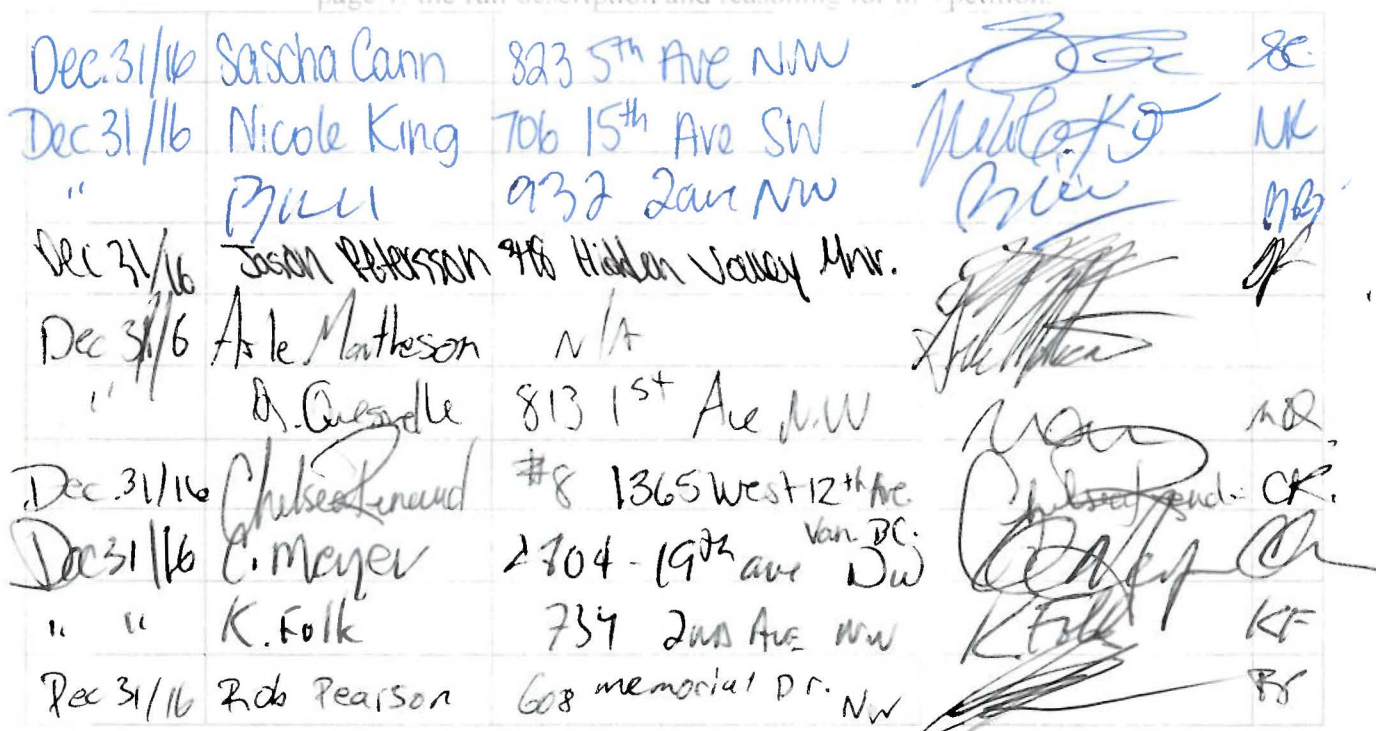 page 1: the full description and reasoning for this petition.
Dec. 31/16 Sascha Cann 823 5th Ave NW SC.
Dec 31/16 Nicole King 706 15th Ave SW Nicole K NK
" 932 2ave NW
Dec 31/16 Jason Petersson 448 Hidden Valley Mnr.
Dec 31/16 Matheson N/A
" Quesnelle 813 1st Ave N.W
Dec. 31/16 Chelsea Renaud #8 1365 West 12th Ave. Van. BC. Chelsea Renaud CR.
Dec 31/16 C. Meyer 2704 - 19th ave NW
" " K. Folk 734 2nd Ave NW K. Folk KF
Dec 31/16 Rob Pearson 608 memorial Dr. NW